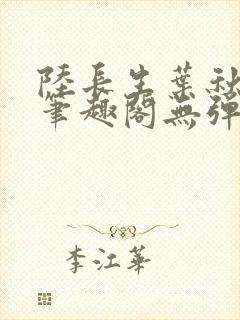 陸長生葉秋
筆趣閣無彈
李江華